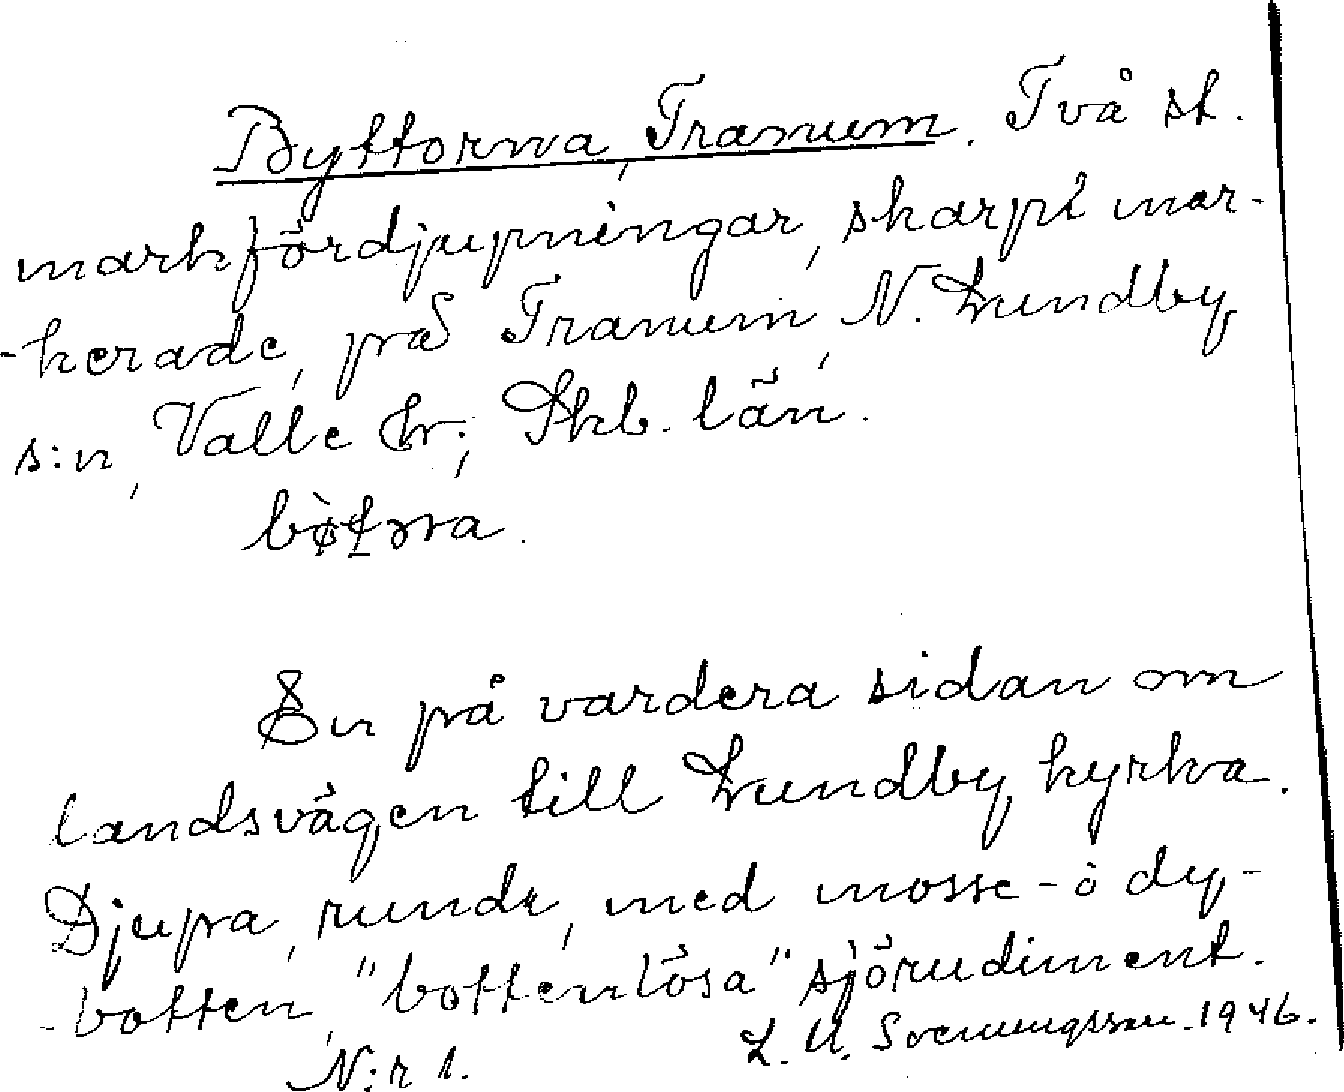 Byttorna, Tranum. Två st.
markfördjupningar, skarpt mar-
-kerade, på Tranum, N. Lundby
s:n, Valle hr; Skb. län.
En på vardera sidan om
landsvägen till Lundby kyrka.
Djupa, runda, med mosse- o dy-
-botten, "bottenlösa" sjörudiment.
L. U. Svenungsson. 1946.
N:r 1.